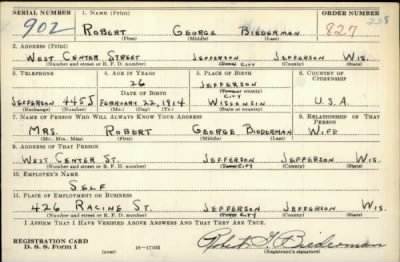 SERIAL NUMBER 1. NAME (Print) ORDER NUMBER
902 ROBERT GEORGE BIEDERMAN 827
(First) (Middle) (Last)
2. ADDRESS (Print)
WEST CENTER STREET JEFFERSON JEFFERSON WIS.
(Number and street or R. F. D. number) (Town) CITY (County) (State)
3. TELEPHONE 4. AGE IN YEARS 5. PLACE OF BIRTH 6. COUNTRY OF CITIZENSHIP
26 JEFFERSON
DATE OF BIRTH (Town or county) CITY
JEFFERSON 445J FEBRUARY 22, 1914 WISCONSIN U.S.A.
(Exchange) (Number) (Mo.) (Day) (Yr.) (State or country)
7. NAME OF PERSON WHO WILL ALWAYS KNOW YOUR ADDRESS 8. RELATIONSHIP OF THAT PERSON
MRS. ROBERT GEORGE BIEDERMAN WIFE
(Mr., Mrs., Miss) (First) (Middle) (Last)
9. ADDRESS OF THAT PERSON
WEST CENTER ST. JEFFERSON JEFFERSON WIS.
(Number and street or R. F. D. number) (Town) CITY (County) (State)
10. EMPLOYER'S NAME
SELF
11. PLACE OF EMPLOYMENT OR BUSINESS
426 RACINE ST. JEFFERSON JEFFERSON WIS.
(Number and street or R. F. D. number) (Town) CITY (County) (State)
I AFFIRM THAT I HAVE VERIFIED ABOVE ANSWERS AND THAT THEY ARE TRUE.
REGISTRATION CARD
D. S. S. Form 1 16—17105 Robert G. Biederman
(Registrant's signature)